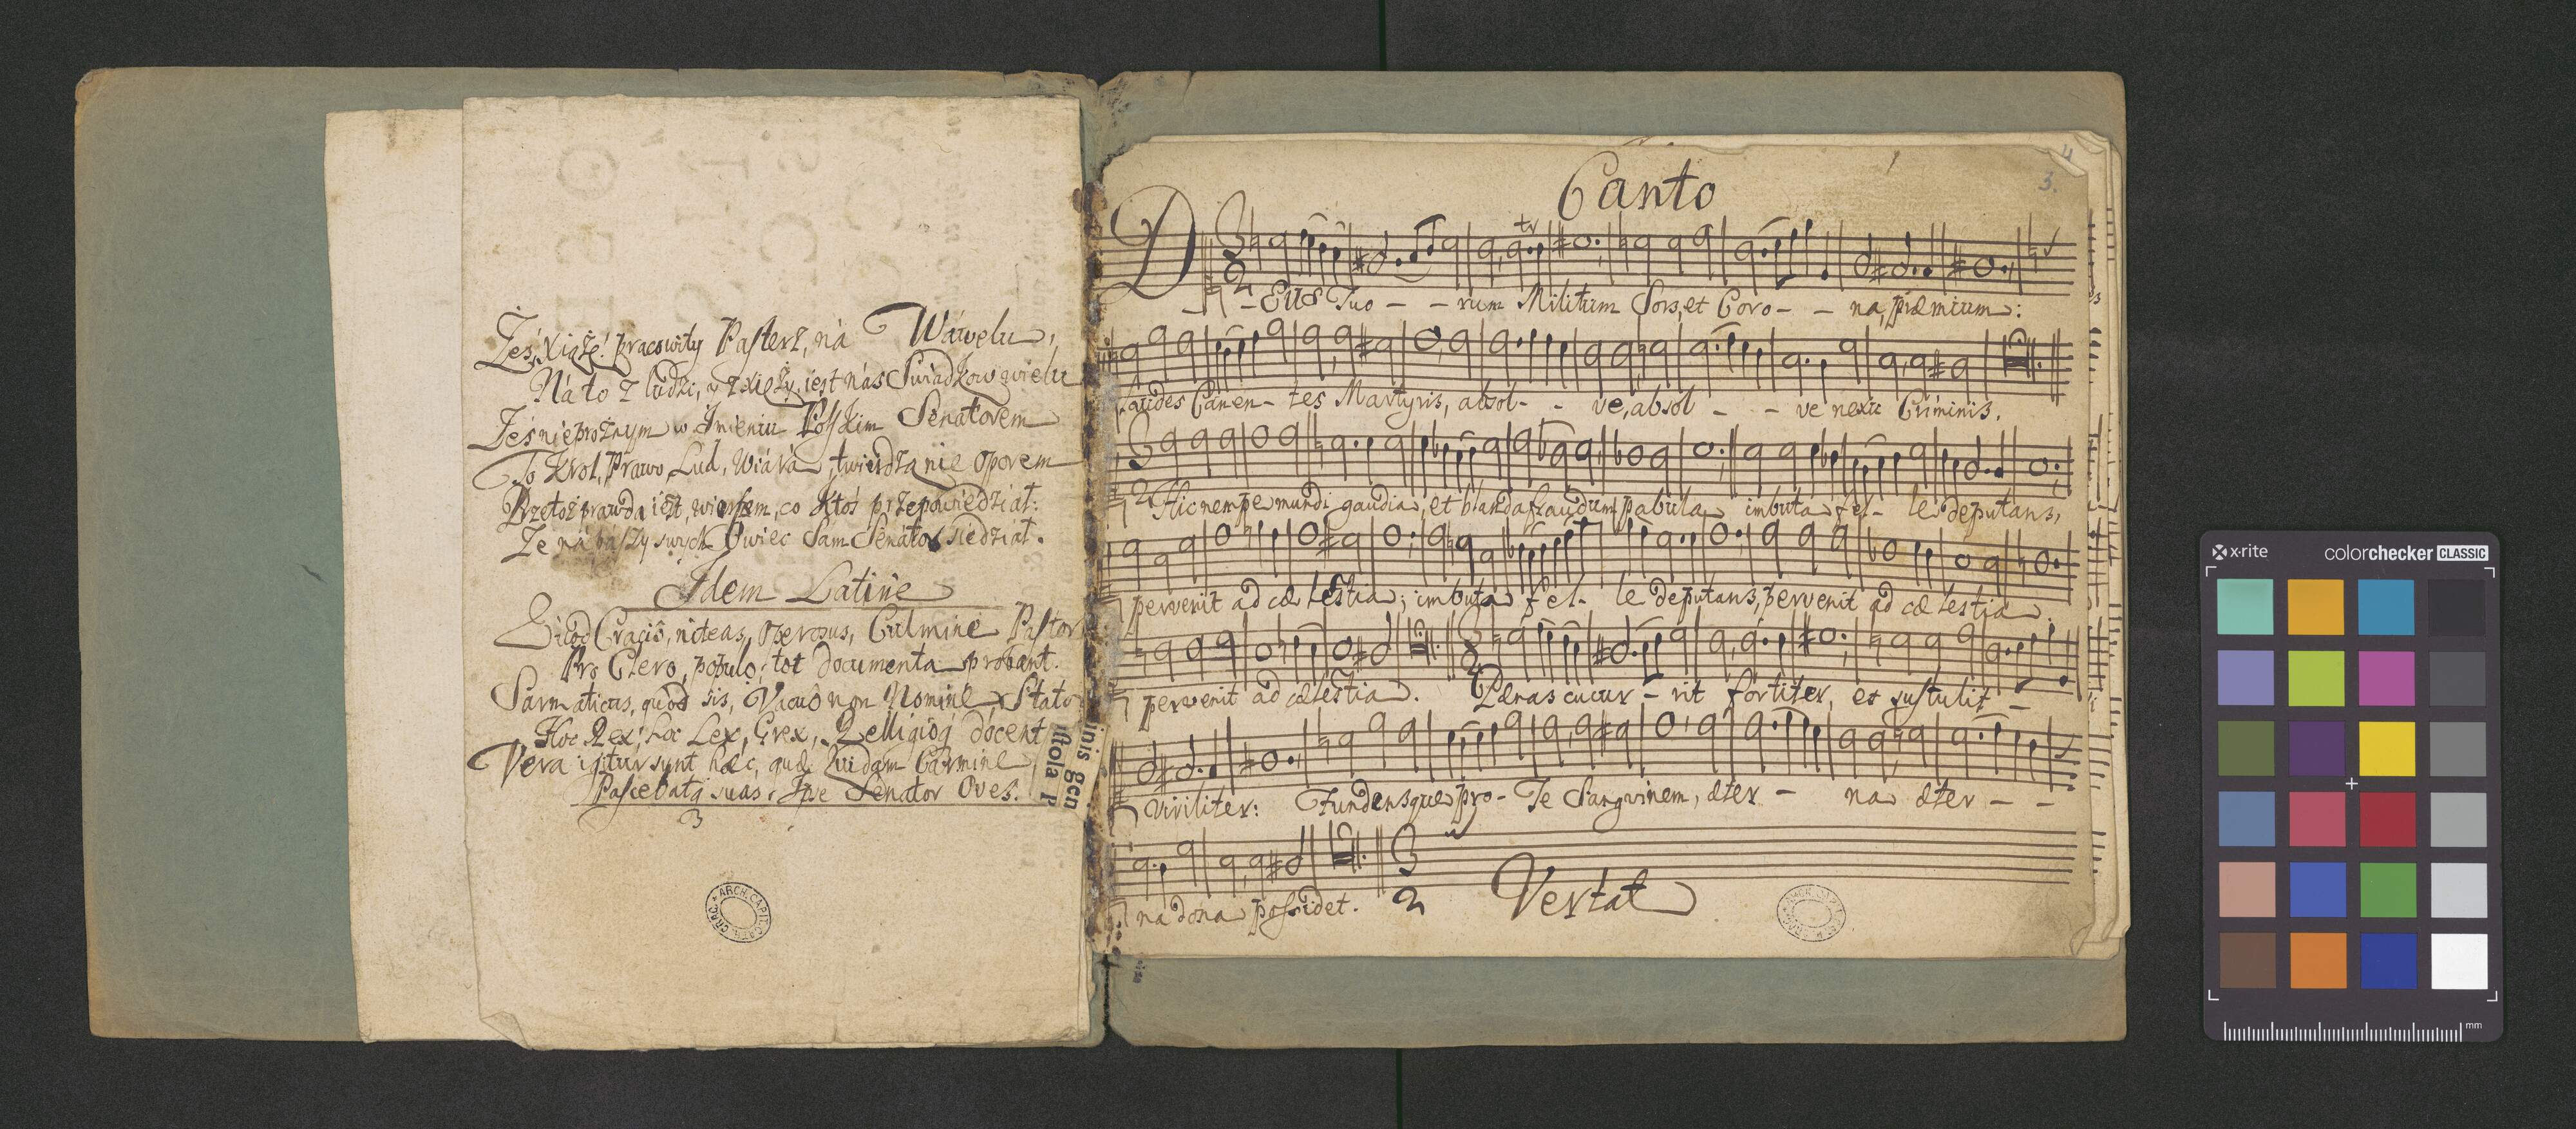 Żeś, Xiążę! pracowity Pasterz, ná Wáwelu,
Ná to z ludzi, y z xięży, iest nás Swiadkow wielu
Żeś nieprożnym w Imieniu Polskim Senatorem
To Krol, Prawo, Lud, Wiárá, twierdzą nie oporem
Przetoż prawda iest, wierszem, co Ktoś przepowiedział:
Ze ná pászy swych Owiec Sam Senátor siedział.
Idem Latine
Quod Cracis, niteas, operosus, Culmine Pastor
Pro Clero, populo; tot documenta probant.
Sarmaticus, quòd sis, Vacuô non Nomine, Stator
Hoc Rex, hoc Lex, Grex, Relligioq́ docent
Vera igitur sunt hæc, quæ quidam Carmine
Pascebatq́ suas, Ipse Senator Oves.
inis gen
istola P
ARCH. CAPIT. CATH. CRAC.
4
3.
Canto
tr
DEUS Tuo - - rum Militum Sors, et Coro - - na, præmium:
Laudes Canen - tes Martyris, absol - - ve, absol - - ve nexu Criminis.
Hic nempe mundi gaudia, et blanda fraudum pabula imbuta fel - le deputans,
pervenit ad cælestia; imbuta fel - le deputans, pervenit ad cælestia.
pervenit ad cælestia. Pænas cucur - rit fortiter, et sustulit -
viriliter: Fundensque pro - Te Sangvinem, æter - na æter - -
na dona possidet. 3 2 Vertat